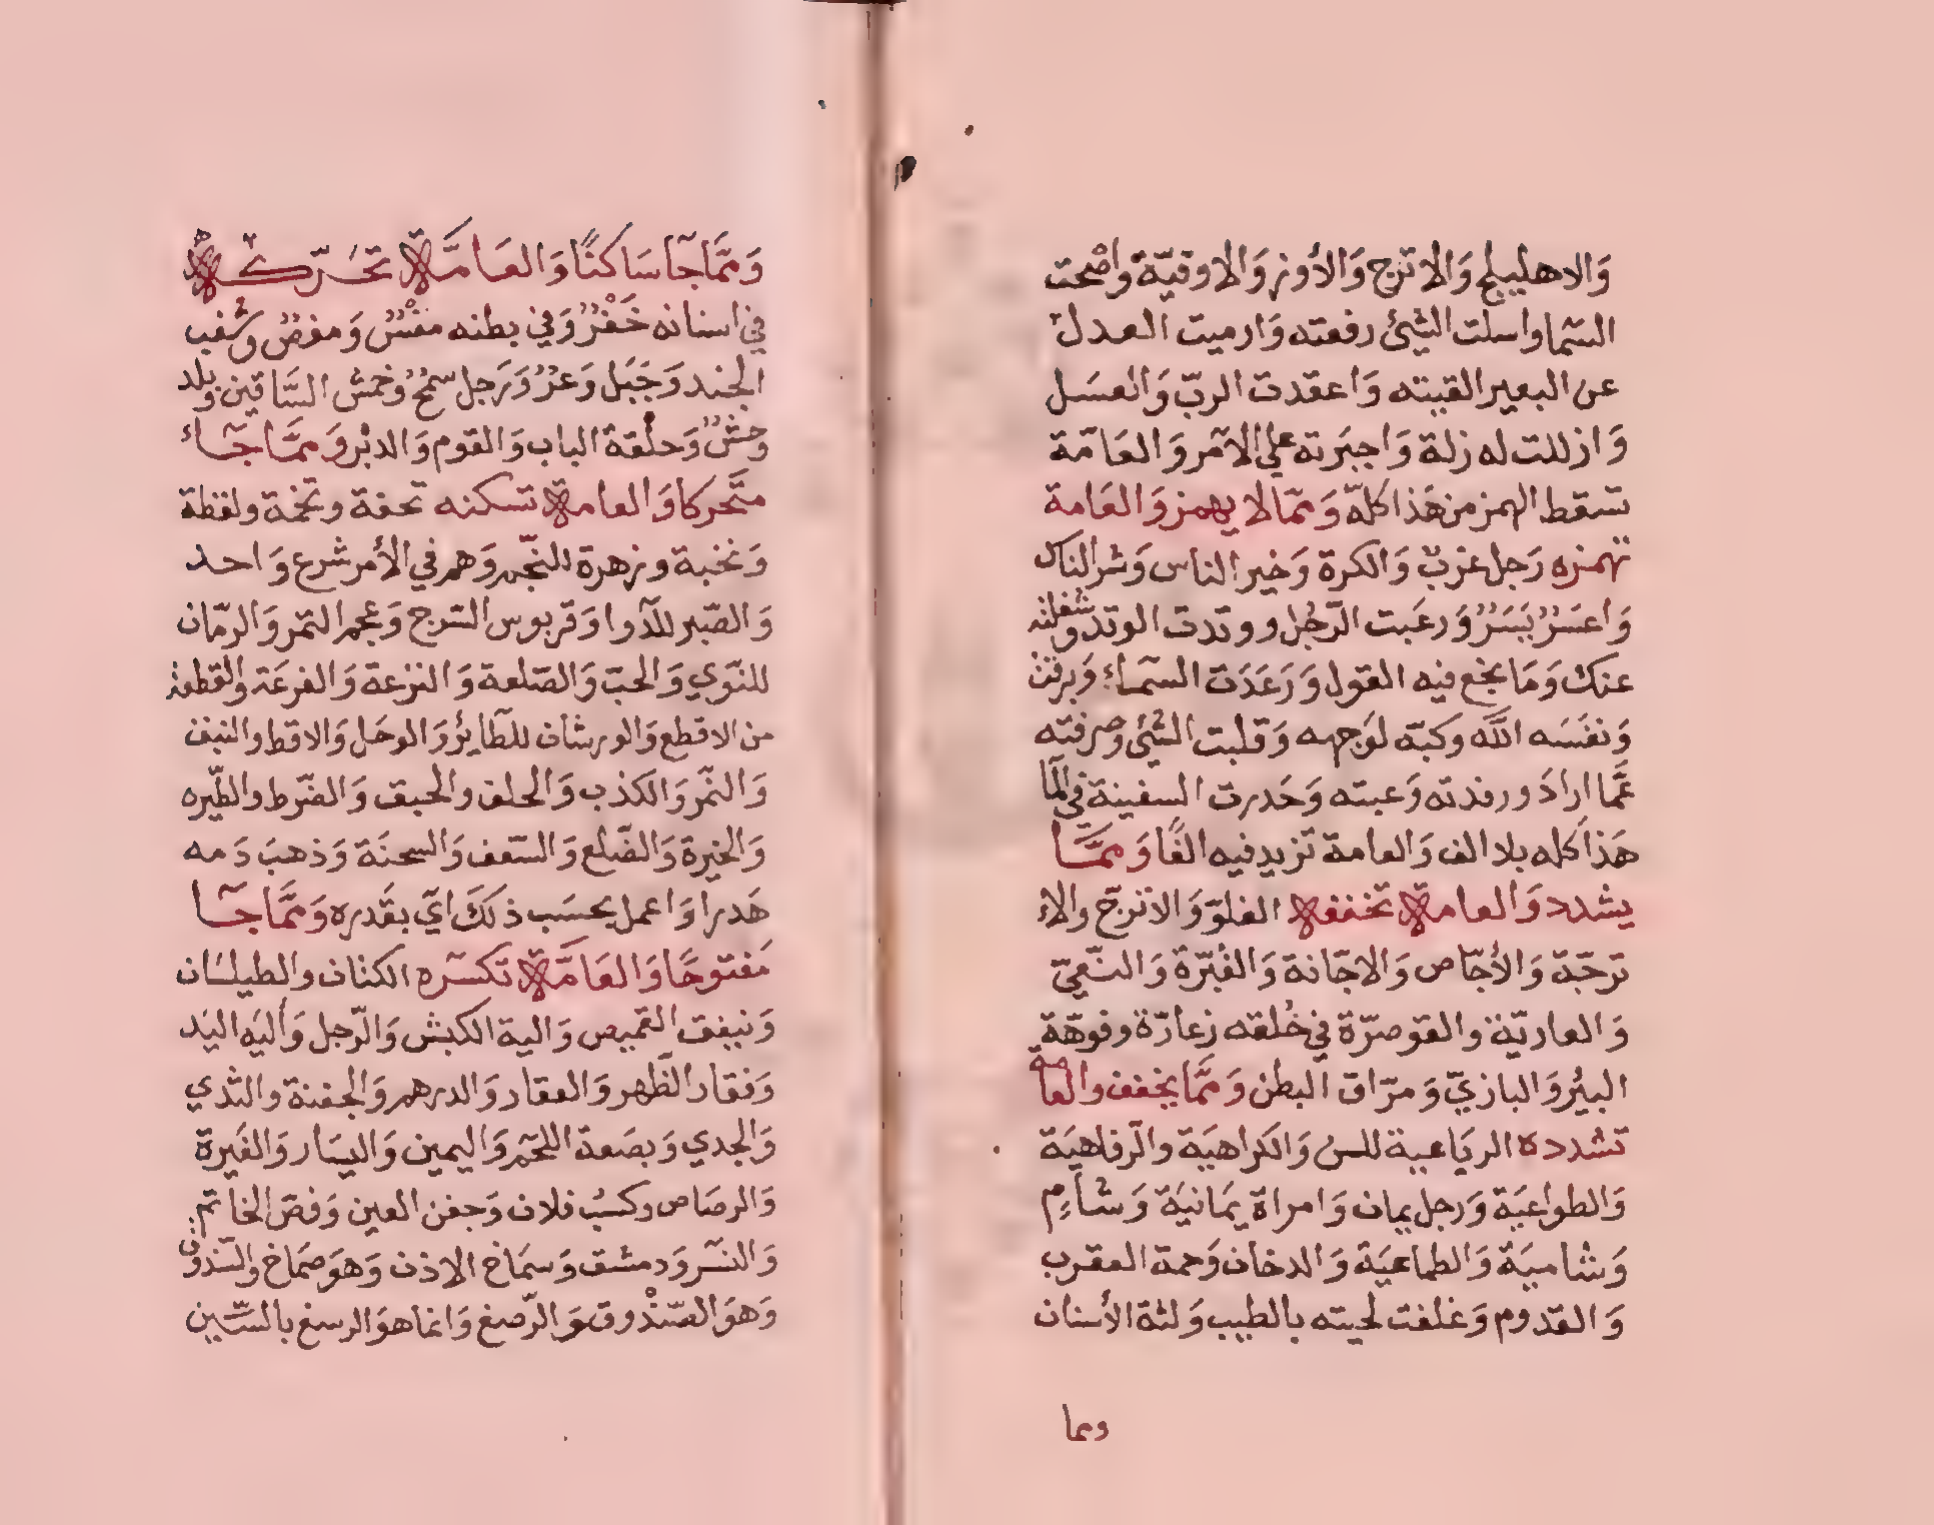 وَالاهليلج وَالاترج وَالأوز وَالاوقيّة واضْحت
السّما واسلت الشّئ رفعته وَارميت العدل
عن البعير القيته وَاعقدت الربّ وَالعسَل
وَازللت له زلة وَاجبَرته علي الامر وَالعَامّة
تسقط الهمز من هَذا كلّه وَممّا لا يهمز وَالعَامة
تهمزه رَجل عزبٌ وَالكرة وَخير الناس وَشر الناس
وَاعسَرُ يَسَرُ وَرعَبت الرّجُل ووتدت الوتد وشغلته
عنك وَمَا نجع فيه القول وَرَعَدَت السّماء وَبرقت
وَنعَسَه اللّه وكبّه لوَجهه وَقلبت الشّئ وصرفته
عمّا ارادَ ورفدته وَعبته وَحَدرت السفينة في المآ
هَذا كله بلا الف وَالعامة تزيد فيه الفًا وَممَّا
يشدد وَالعامة تخففه الفلوّ وَالاترجّ والا
ترجّة وَالأجّاص وَالاجّانة وَالقُبّرة وَالنّعيّ
وَالعاريّة والقوصرّة في خُلقه زعارّة وفوهّة
البيُر وَالبازيّ وَمرّاق البطن وَممَّا يخفف والعامّة
تشدده الربَاعية للسن وَالكراهيَة والرّفاهيَة
وَالطواعيَة وَرجل يمان وَامراة يَمَانيَة وَشآمٍ
وَشاميَة وَالطماعيَة وَالدخان وَحمة العقرب
وَالقدوم وَغلفت لحيته بالطيب وَلثة الأسنان
ومما
وَممَّا جَآ سَاكنًا وَالعَامَّة تحَرّكه
في اسنانه حَفْرٌ وَفي بطنه مغْسٌ وَمغصٌ وشغب
الجند وَجَبَل وَعْرٌ وَرَجل سمْحٌ وحمش السَّاقين وبلد
وحْشٌ وَحلْقة الباب وَالقوم وَالدبْر وَممَّا جَآء
متَحركا وَالعامة تسكنه تحفة وتخمة ولقطة
وَنخبة وزهرة للنّجم وَهم في الأمر شرع وَاحد
وَالصّبر للدّوا وَقربوس السّرج وَعجم التمر وَالرمّان
للنّوي وَالحبّ وَالصّلعة وَالنزعة وَالفرعَة والقطعة
من الاقطع وَالورشان للطّائر وَالوحَل وَالاقط والنبق
وَالنّمر وَالكذب وَالحلف والحبق وَالضّرط والطّيره
وَالخيرة وَالضّلع وَالسّعف وَالسحنَة وَذهبَ دَمه
هَدرا وَاعمل بحسَب ذلكَ ايّ بقَدره وَممَّا جَآ
مَفتوحًا وَالعَامَّة تكسّره الكتان والطيلسَان
وَنيفق القميص وَالية الكبش وَالرّجل وَأليَه اليَد
وَفقار الظّهر وَالعقار وَالدرهم وَالجفنة والثّدي
وَالجدي وَبضعة اللّحم وَاليمين وَاليسَار وَالغَيرة
وَالرصَاص وكسْب فلان وَجفن العين وَفصّ الخاتم
وَالنسّر وَدمشق وَسمَاخ الاذن وَهوَ صمَاخ والسّندوق
وَهوَ الصّنْدوق وَالرّصغ وَانما هوَ الرسغ بالسّين